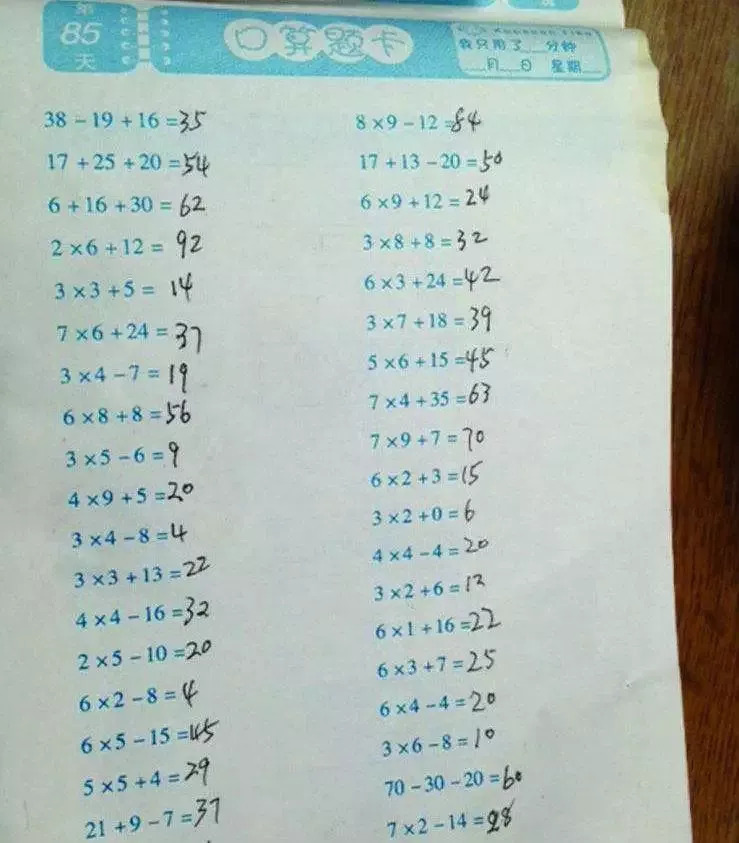 第
85
天
口算题卡
我只用了__分钟
__月__日 星期__
38 - 19 + 16 = 35
17 + 25 + 20 = 54
6 + 16 + 30 = 62
2 × 6 + 12 = 92
3 × 3 + 5 = 14
7 × 6 + 24 = 37
3 × 4 - 7 = 19
6 × 8 + 8 = 56
3 × 5 - 6 = 9
4 × 9 + 5 = 20
3 × 4 - 8 = 4
3 × 3 + 13 = 22
4 × 4 - 16 = 32
2 × 5 - 10 = 20
6 × 2 - 8 = 4
6 × 5 - 15 = 45
5 × 5 + 4 = 29
21 + 9 - 7 = 37
8 × 9 - 12 = 84
17 + 13 - 20 = 50
6 × 9 + 12 = 24
3 × 8 + 8 = 32
6 × 3 + 24 = 42
3 × 7 + 18 = 39
5 × 6 + 15 = 45
7 × 4 + 35 = 63
7 × 9 + 7 = 70
6 × 2 + 3 = 15
3 × 2 + 0 = 6
4 × 4 - 4 = 20
3 × 2 + 6 = 12
6 × 1 + 16 = 22
6 × 3 + 7 = 25
6 × 4 - 4 = 20
3 × 6 - 8 = 10
70 - 30 - 20 = 60
7 × 2 - 14 = 28